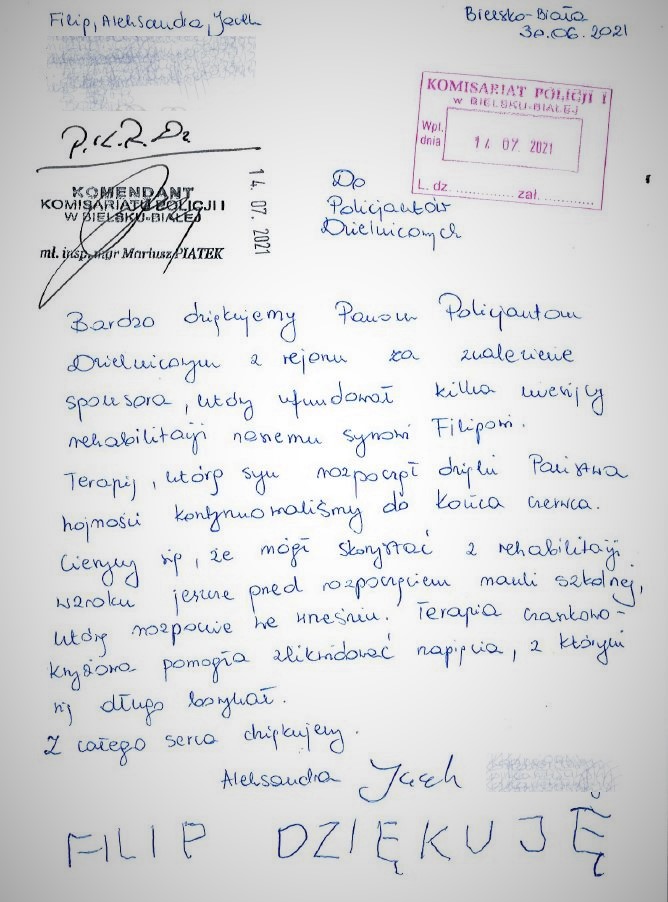 Filip, Aleksandra, Jacek
Bielsko-Biała
30.06.2021
KOMISARIAT POLICJI I
W BIELSKU-BIAŁEJ
Wpł.
dnia
14 07. 2021
L. dz. .............. zał. ..............
P.K.R.Dz
KOMENDANT
KOMISARIATU POLICJI I
W BIELSKU-BIAŁEJ
mł. insp. mgr Mariusz PIATEK
14. 07. 2021
Do
Policjantów
Dzielnicowych
Bardzo dziękujemy Panom Policjantom
Dzielnicowym z rejonu za znalezienie
sponsora, który ufundował kilka miesięcy
rehabilitacji naszemu synowi Filipowi.
Terapię, którą syn rozpoczął dzięki Państwa
hojności kontynuowaliśmy do końca czerwca.
Cieszymy się, że mógł skorzystać z rehabilitacji
wzroku jeszcze przed rozpoczęciem nauki szkolnej,
którą rozpocznie we wrześniu. Terapia czaszkowo-
krzyżowa pomogła zlikwidować napięcia, z którymi
się długo borykał.
Z całego serca dziękujemy.
Aleksandra Jacek
FILIP DZIĘKUJĘ